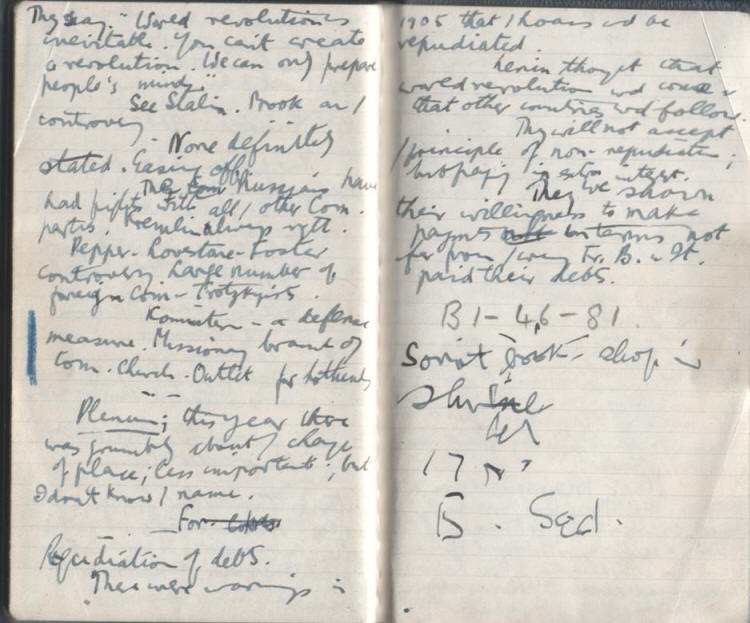 They say: "World revolution is
inevitable. You can't create
a revolution. We can only prepare
people's minds."
See Stalin. Book on /
controversy.
- None definitely
stated. Easing off.
The Russians have
had fights with all / other Com.
parties. Kremlin always right.
Pepper - Lovestone - Foster
controversy. Large number of
foreign Com - Trotskyists.
Komintern - a defence
measure. Missionary branch of
Com. Church. Outlet for hotheads
Plenum; this year there
was grumbling about / change
of place; less important; but
I don't know / name.
For
Repudiation of debts.
There were warnings in
1905 that / loans wd be
repudiated.
Lenin thought that
world revolution wd come &
that other countries wd follow.
They will not accept
/ principle of non-repudiation;
but paying in extra interest.
They've shown
their willingness to make
payments not on terms not
far from / way Fr. B. & It.
paid their debts.
B1-46-81.
Soviet book-shop in
17
B. Sad.